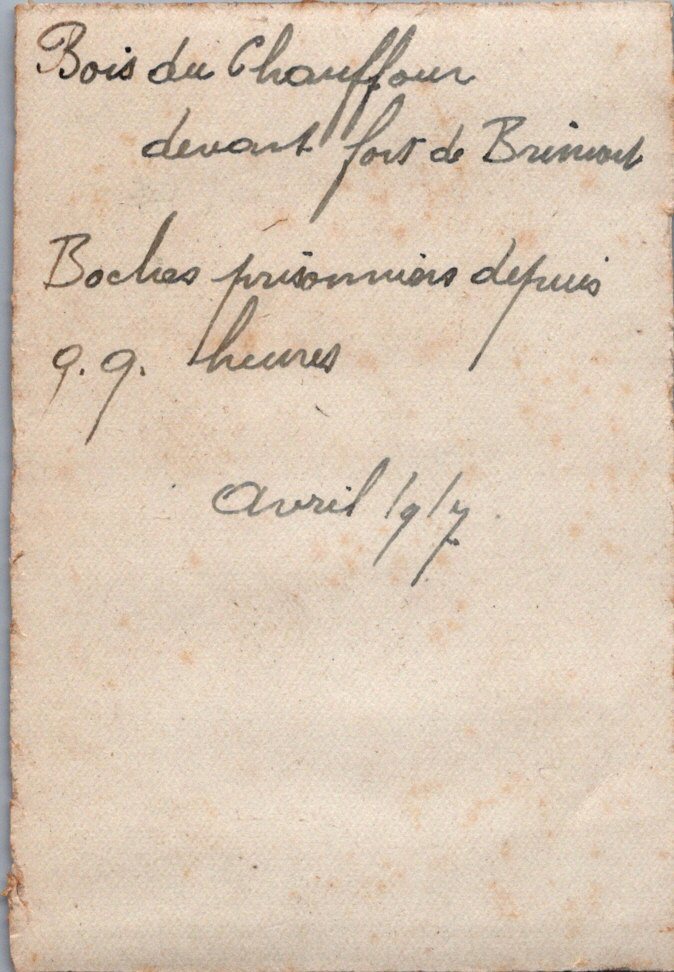 Bois du Chauffour
devant fort de Brimont
Boches prisonniers depuis
q.q. heures
Avril 1917.